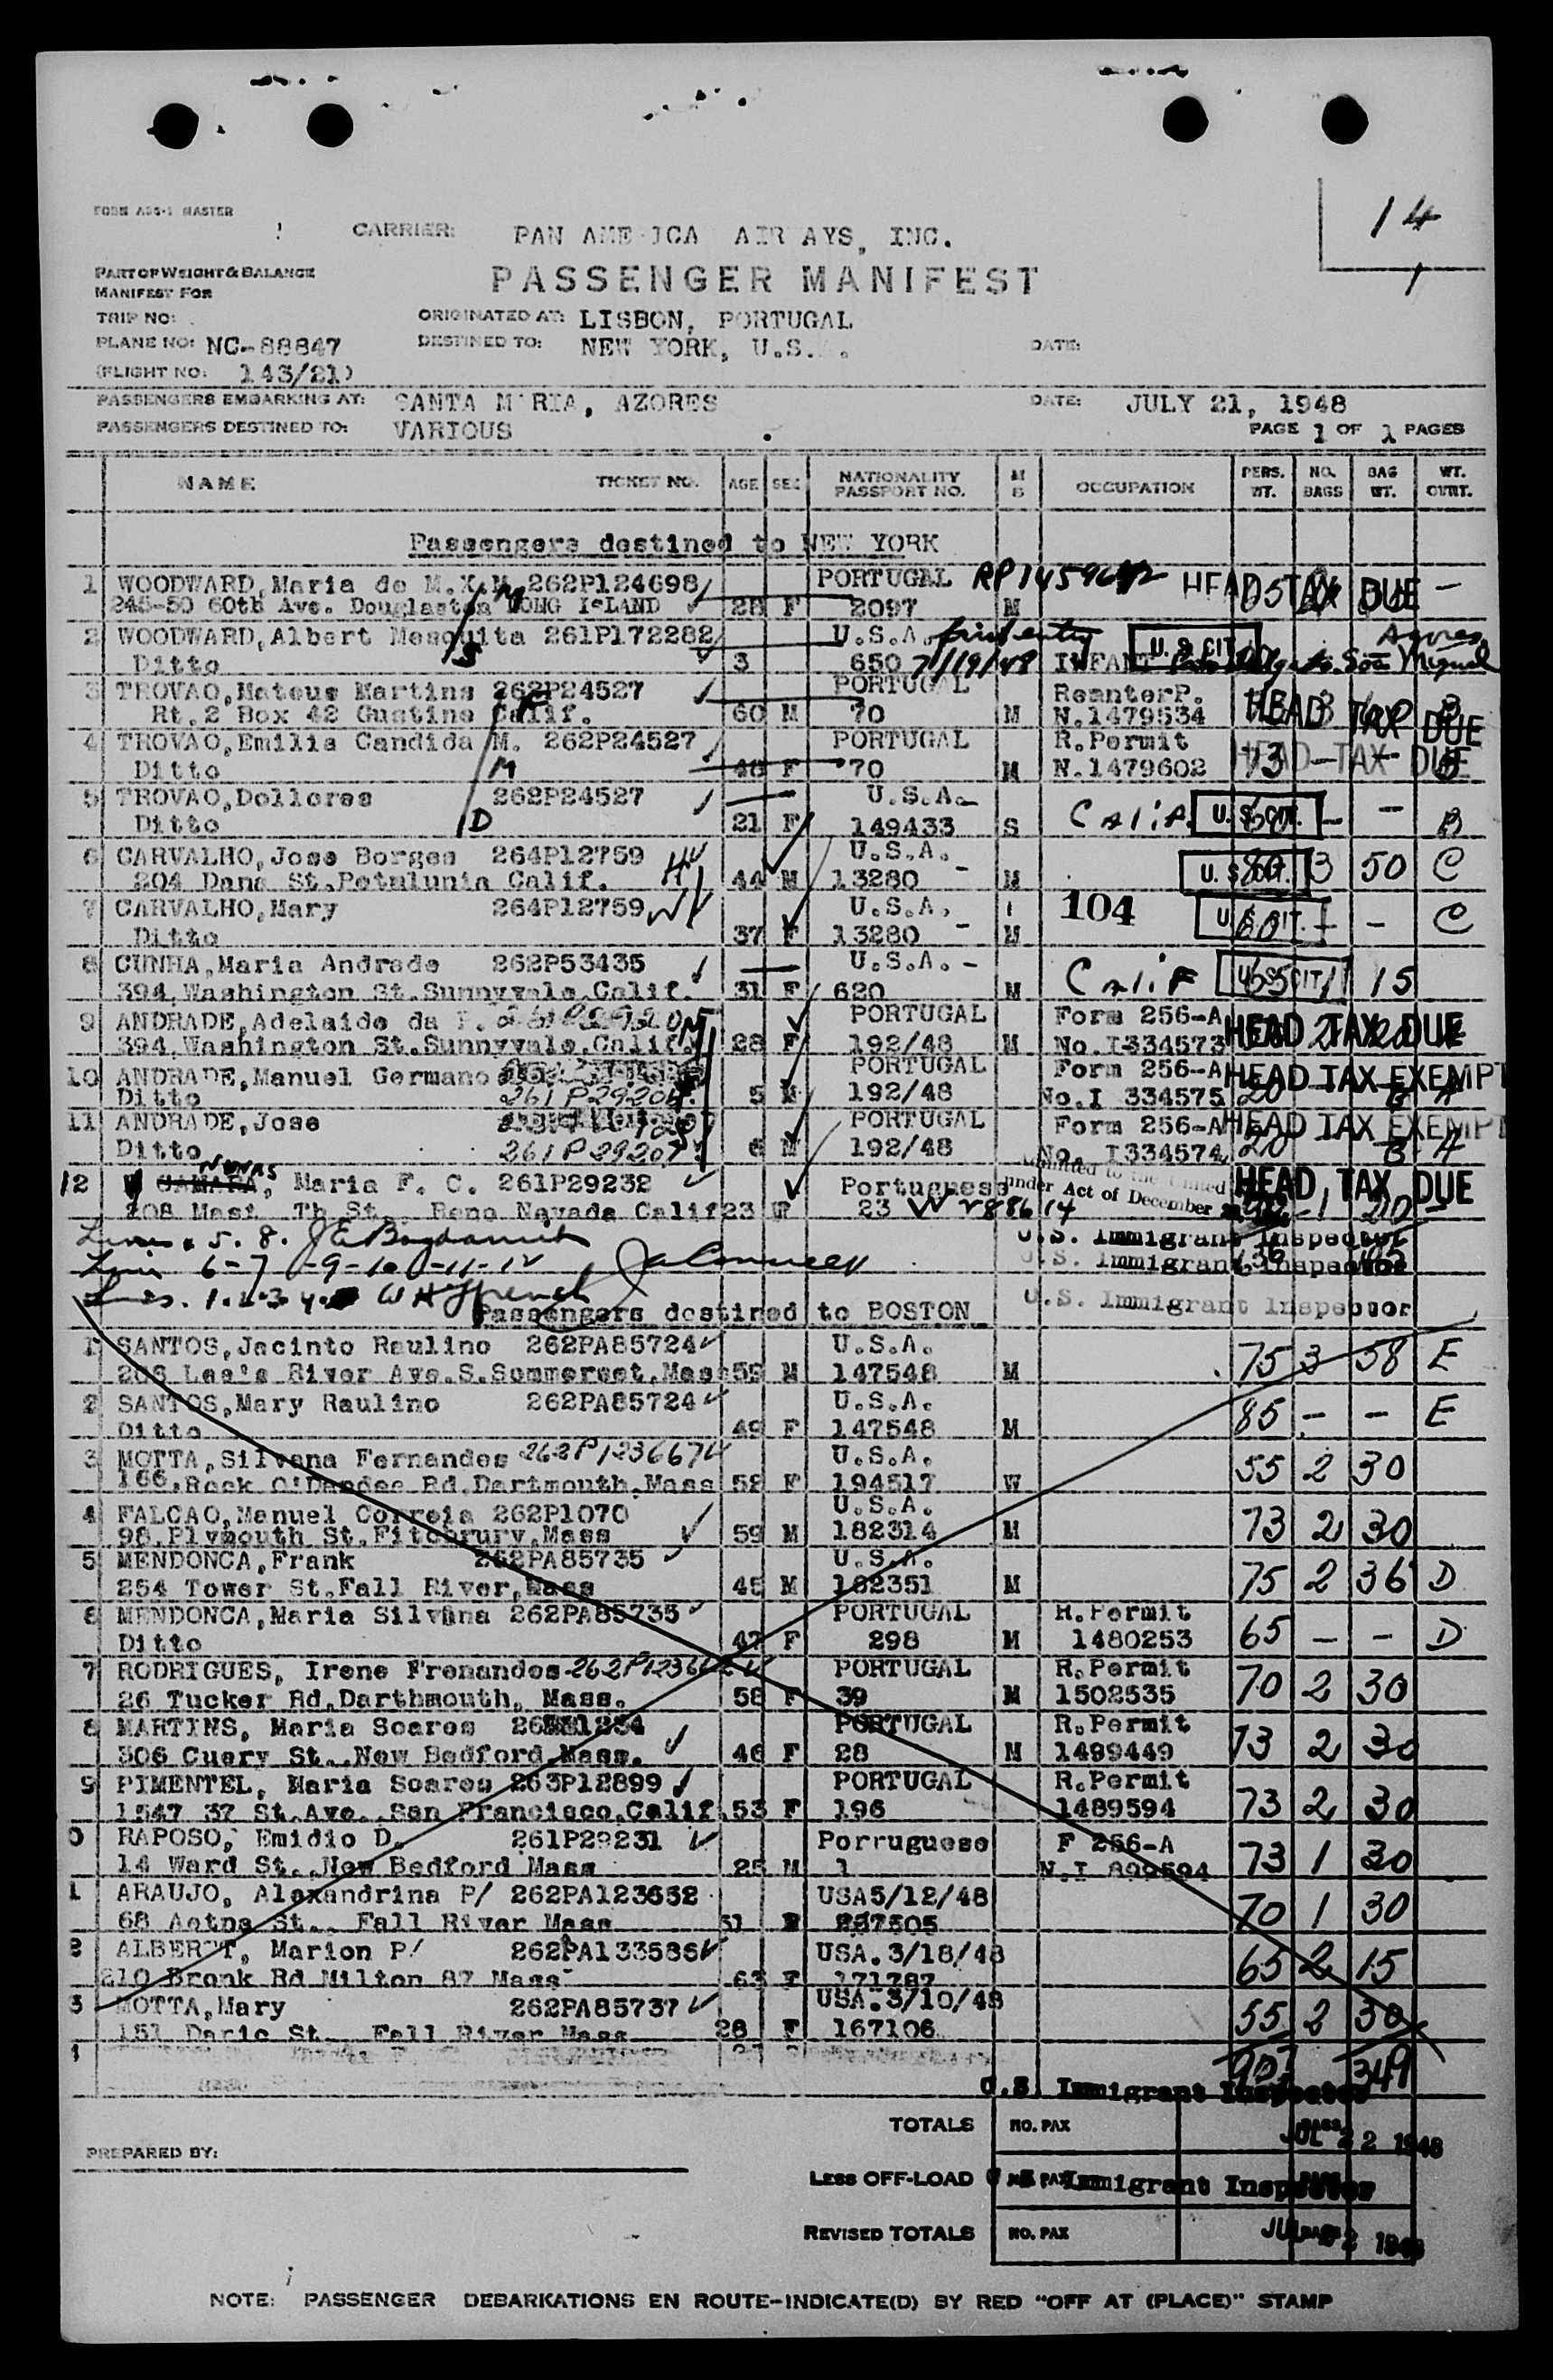 FORM
MASTER
14
1
CARRIER: PAN AME ICA AIR AYS, INC.
PART OF WEIGHT & BALANCE
MANIFEST FOR
PASSENGER MANIFEST
TRIP NO:
ORIGINATED AT: LISBON, PORTUGAL
PLANE NO: NC-88847
DESTINED TO: NEW YORK, U.S. .
DATE:
(FLIGHT NO: 143/21)
PASSENGERS EMBARKING AT: SANTA M RIA, AZORES
DATE: JULY 21, 1948
PASSENGERS DESTINED TO: VARIOUS
PAGE 1 OF 1 PAGES
NAME TICKET NO. AGE SEX NATIONALITY PASSPORT NO. OCCUPATION PERS. WT. NO. BAGS BAG WT. WT.
Passengers destined to NEW YORK
1 WOODWARD, Maria de M.X.M. 262P124698 PORTUGAL HEAD TAX DUE -
245-50 60th Ave. Douglaston LONG ISLAND 28 F 2097 M
2 WOODWARD, Albert Mesquita 261P172282 U.S.A. first entry U.S. CIT. Azores
Ditto 3 650 7/19/48 INFANT Miguel
3 TROVAO, Mateus Martins 262P24527 PORTUGAL ReenterP. HEAD TAX DUE
Rt.2 Box 42 Gustine Calif. 60 M 70 M N.1479534
4 TROVAO, Emilia Candida M. 262P24527 PORTUGAL R.Permit HEAD TAX DUE
Ditto M 48 F 70 M N.1479602 73 - - B
5 TROVAO, Dollores 262P24527 U.S.A. Calif. U.S. CIT. - -
Ditto D 21 F 149433 S B
6 CARVALHO, Jose Borges 264P12759 U.S.A. U.S. CIT. 80 3 50 C
204 Dana St. Petalunia Calif. 44 M 13280 - M
7 CARVALHO, Mary 264P12759 U.S.A. 104 U.S. CIT. 60 - - C
Ditto 37 F 13280 - M
8 CUNHA, Maria Andrade 262P53435 U.S.A. - Calif U.S. CIT. 55 1 15
394, Washington St. Sunnyvale, Calif. 31 F 620 M
9 ANDRADE, Adelaide da F. 261P29206 PORTUGAL Form 256-A HEAD TAX DUE
394, Washington St. Sunnyvale, Calif. 28 F 192/48 M No.I-334573
10 ANDRADE, Manuel Germano PORTUGAL Form 256-A HEAD TAX EXEMPT
Ditto 261P29206 5 M 192/48 No.I 334575 20 A
11 ANDRADE, Jose PORTUGAL Form 256-A HEAD TAX EXEMPT
Ditto 261P29207 6 M 192/48 No. I334574 20 A
NUNAS
12 CAMARA, Maria F. C. 261P29232 Portuguese under Act of December HEAD TAX DUE
208 Mast Th St. Reno Nevada Calif 23 F 23 1 20 -
Lines 5. 8. U.S. Immigrant Inspector
Lines 6-7-9-10-11-12 U.S. Immigrant Inspector
Lines. 1.2.3.4. U.S. Immigrant Inspector
Passengers destined to BOSTON
1 SANTOS, Jacinto Raulino 262PA85724 U.S.A. 75 3 58 E
206 Lee's River Ave. S. Sommerset, Mass 59 M 147548 M
2 SANTOS, Mary Raulino 262PA85724 U.S.A. 85 - - E
Ditto 49 F 147548 M
3 MOTTA, Silvana Fernandes 262P123667 U.S.A. 55 2 30
166, Rock O'Dundee Rd. Dartmouth, Mass 52 F 194517 W
4 FALCAO, Manuel Correia 262P1070 U.S.A. 73 2 30
98, Plymouth St. Fitchrury, Mass 59 M 182314 M
5 MENDONCA, Frank 262PA85735 U.S.A. 75 2 36 D
254 Tower St. Fall River, Mass 45 M 182351 M
6 MENDONCA, Maria Silvana 262PA85735 PORTUGAL R.Permit 65 - - D
Ditto 47 F 298 M 1480253
7 RODRIGUES, Irene Frenandes PORTUGAL R.Permit 70 2 30
26 Tucker Rd, Darthmouth, Mass. 58 F 39 M 1502535
8 MARTINS, Maria Soares PORTUGAL R.Permit 73 2 30
306 Cuery St., New Bedford Mass. 46 F 28 M 1499449
9 PIMENTEL, Maria Soares 263P12899 PORTUGAL R.Permit 73 2 30
1547 37 St. Ave., San Francisco, Calif. 53 F 196 1489594
0 RAPOSO, Emidio D. 261P29231 Porruguese F 256-A 73 1 30
14 Ward St., New Bedford Mass 25 M 1 N.I 899594
1 ARAUJO, Alexandrina P/ 262PA123652 USA5/12/48 70 1 30
68 Aetna St., Fall River Mass 51 F
2 ALBERCT, Marion P/ 262PA133586 USA.3/18/48 65 2 15
210 Brook Rd Milton 87 Mass 63 F 171787
3 MOTTA, Mary 262PA85737 USA.3/10/48 55 2 30
151 Daric St. Fall River Mass 28 F 167106
907 349
U.S. Immigrant Inspector
TOTALS NO. PAX BAGS JUL 22 1948
PREPARED BY:
LESS OFF-LOAD NO. PAX Immigrant Inspector
REVISED TOTALS NO. PAX BAGS JUL 22 1948
NOTE: PASSENGER DEBARKATIONS EN ROUTE-INDICATE(D) BY RED "OFF AT (PLACE)" STAMP